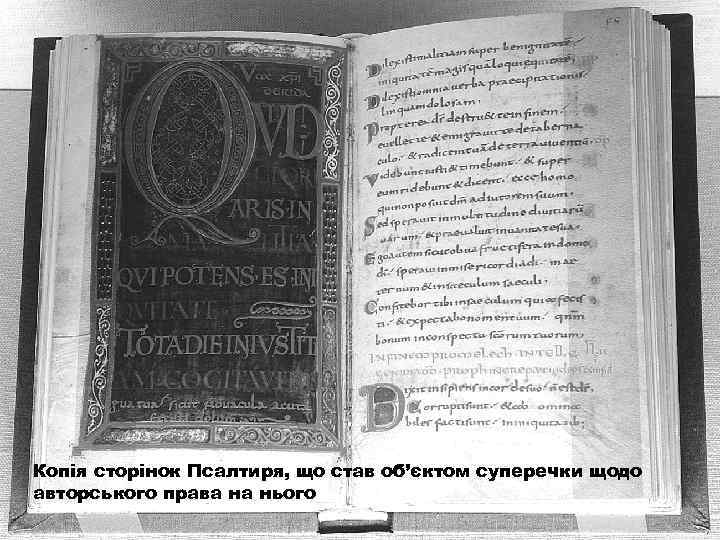 QVID
ARIS·IN
QVI POTENS·ES·INI
QVITATE
TOTADIE INIVSTIT
gua tua sicut novacula acuta
Dilexisti malitiam super benignitatē·
iniquitatē magis quā loqui equitatē·
Dilexisti omnia verba praecipitationis·
lingua dolosa·
Propterea dr destruet te in finem·
evellet te & emigravit te de taberna
culo· & radicem tuā de terra viventiū·
Videbunt iusti & timebunt· & super
eum ridebunt & dicent· ecce homo
qui non posuit dm adiutorem suum·
Sed speravit in multitudine divitiarū
suarum· & praevaluit in vanitate sua·
Ego autem sicut oliva fructifera in domo
di· speravi in misericordia di· in ae
ternum & in saeculum saeculi·
Confitebor tibi in saeculum qui fecis
ti· & expectabo nomen tuum· qnm
bonum in conspectu scōrum tuorum·
Dixit insipiens in corde suo· n est ds·
Corrupti sunt· & abominabiles facti sunt· in iniquitatib;
Копія сторінок Псалтиря, що став об’єктом суперечки щодо
авторського права на нього